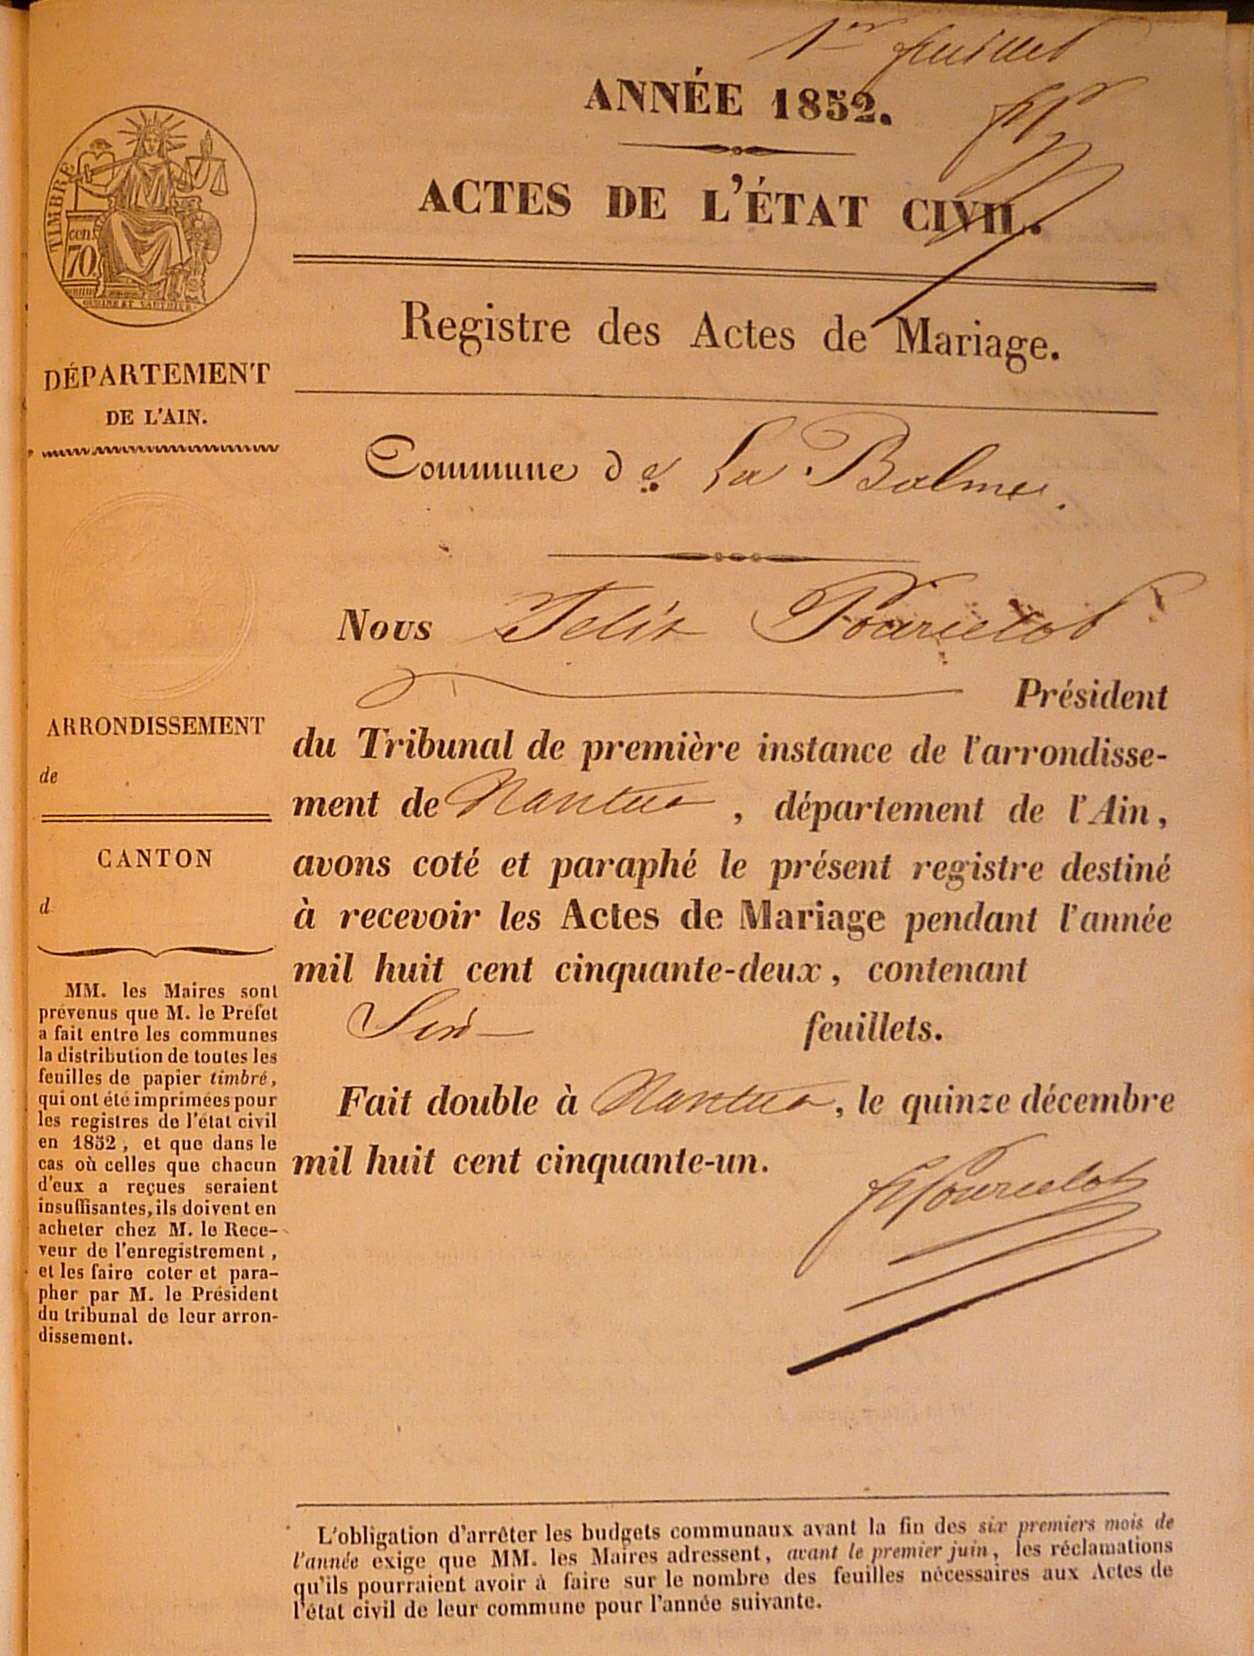 1er feuillet
ANNÉE 1852.
ACTES DE L'ÉTAT CIVIL.
Registre des Actes de Mariage.
TIMBRE
cent.
70
DÉPARTEMENT
DE L'AIN.
Commune de La Balme.
Nous Felix Pourcelot
Président
du Tribunal de première instance de l'arrondisse-
ment de Nantua, département de l'Ain,
avons coté et paraphé le présent registre destiné
à recevoir les Actes de Mariage pendant l'année
mil huit cent cinquante-deux, contenant
Six feuillets.
Fait double à Nantua, le quinze décembre
mil huit cent cinquante-un.
Pourcelot
ARRONDISSEMENT
de
CANTON
d
MM. les Maires sont
prévenus que M. le Préfet
a fait entre les communes
la distribution de toutes les
feuilles de papier timbré,
qui ont été imprimées pour
les registres de l'état civil
en 1852, et que dans le
cas où celles que chacun
d'eux a reçues seraient
insuffisantes, ils doivent en
acheter chez M. le Rece-
veur de l'enregistrement,
et les faire coter et para-
pher par M. le Président
du tribunal de leur arron-
dissement.
L'obligation d'arrêter les budgets communaux avant la fin des six premiers mois de
l'année exige que MM. les Maires adressent, avant le premier juin, les réclamations
qu'ils pourraient avoir à faire sur le nombre des feuilles nécessaires aux Actes de
l'état civil de leur commune pour l'année suivante.